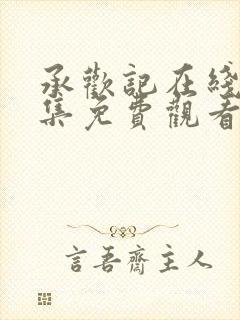 承歡記在綫
集免費觀看
言吾齋主人